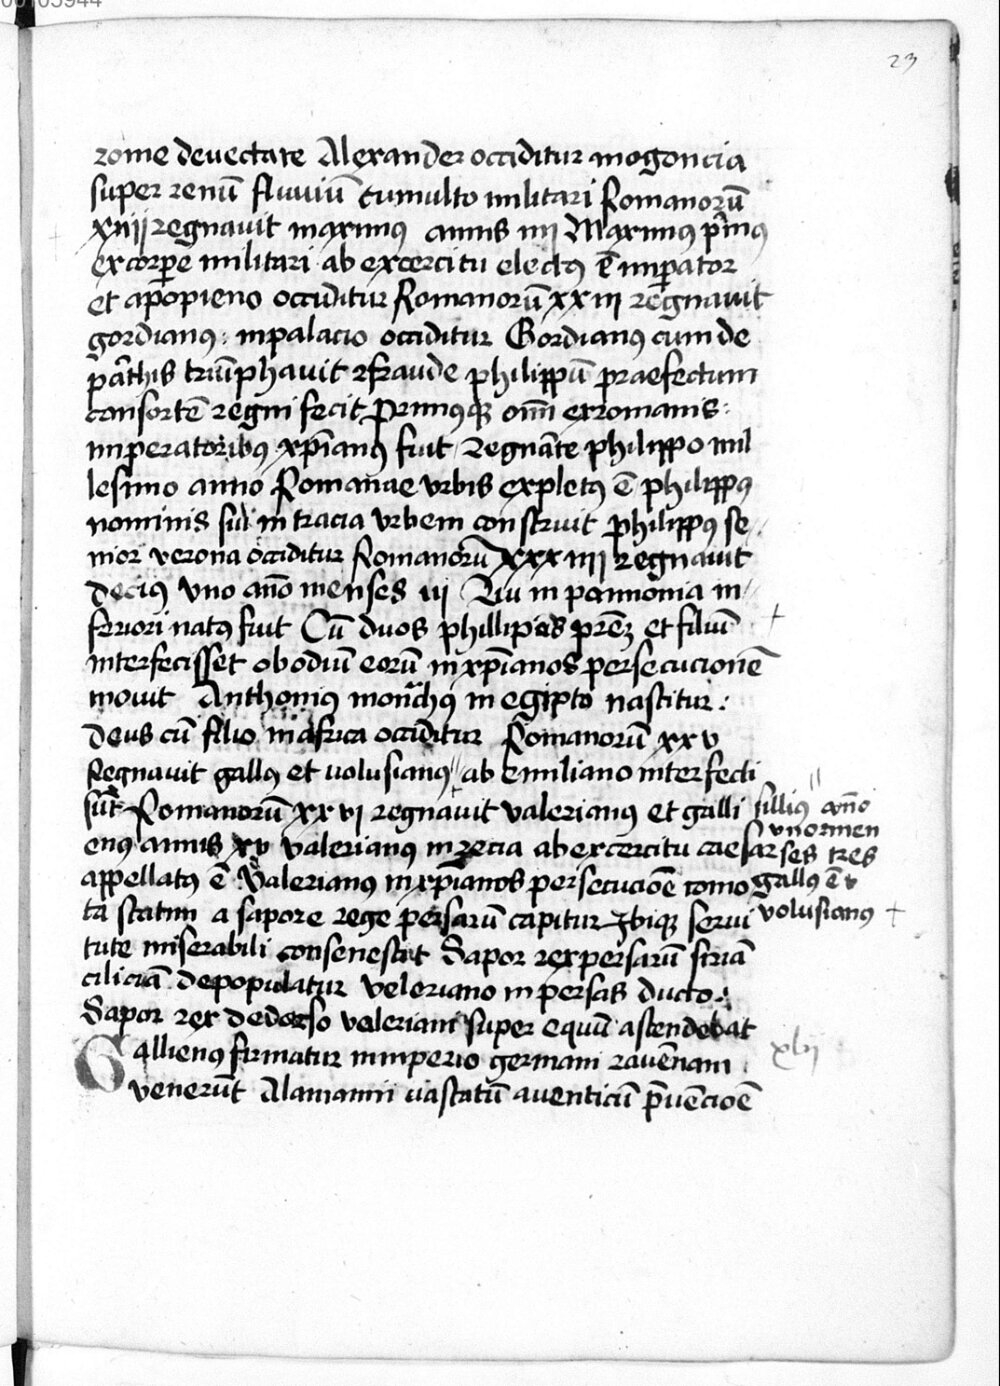 00103944
23
rome deuectare Alexander occiditur mogoncia
super renū fluuiū tumulto militari Romanorū
xxiij regnauit maximus annis iii Maximus p̄mus
excorpe militari ab excercitu electus ē imperator
et apopieno occiditur Romanorū xxiii regnauit
gordianus : inpalacio occiditur Gordianus cum de
parthis triūphauit rfraude philippū praefectum
cansortē regni fecit Primusq; om̄i exromanis :
imperatoribus xp̄ianus fuit regnāte philippo mil
lesimo anno Romanae vrbis expletus ē philippus
nominis sui in tracia vrbem construit philippus se//
nior verona occiditur Romanorū xxxiiij regnauit
decius vno an̄o menses iij Qui in pannonia in//
feriori natus fuit Cū duos phillipos p̄rez et filiū
interfecisset obodiū eorū in xp̄ianos persecucionē
mouit Anthonius monachus in egipto nascitur :
deus cū filio in africa occiditur Romanorū xxv
Regnauit gallus et uolusianus // ab Emiliano interfecti
sūt Romanorū xxvi regnauit valerianus et galli
enus annis xv valerianus in zecia ab excercitu caesar
appellatus ē Valerianus in xp̄ianos persecucioē como
ta statim a sapore rege persarū capitur Ibiq; serui
tute miserabili consenescit Sapor rex persarū siriā
ciliciā depopulatur veleriano in persas ducto :
Sapor rex dedorso valeriani super equū ascendebat
Gallienus firmatur inimperio germani rauēnam
venerūt Alamanni uastatū auenticū p̄uēcioē
// fillius an̄o
vnormen
ses tres
gallus ē v
volusianus +
xlvj